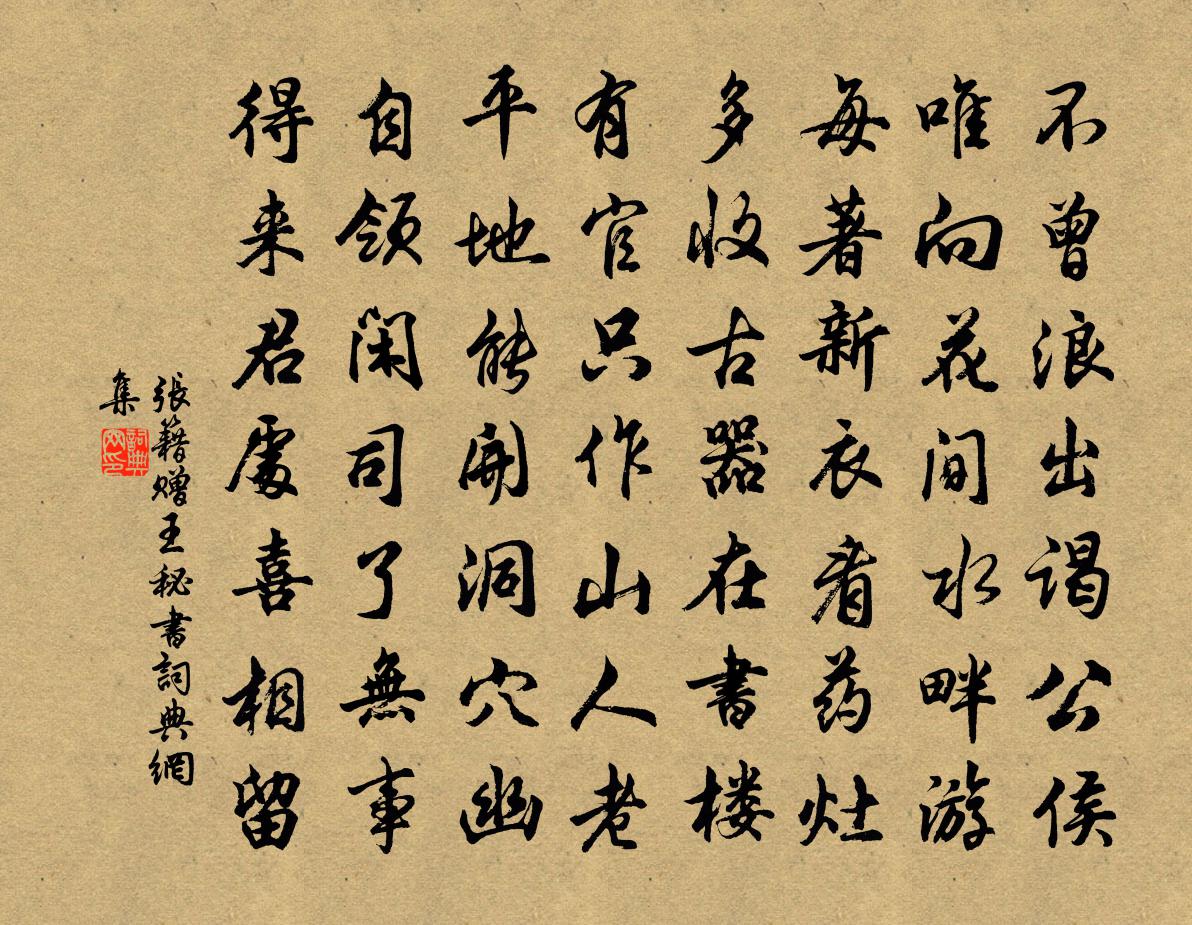 不曾浪出谒公侯
唯向花间水畔游
每著新衣看药灶
多收古器在书楼
有官只作山人老
平地能开洞穴幽
自领闲司了無事
得来君處喜相留
張籍赠王秘書詞典網
集
詞典
网印